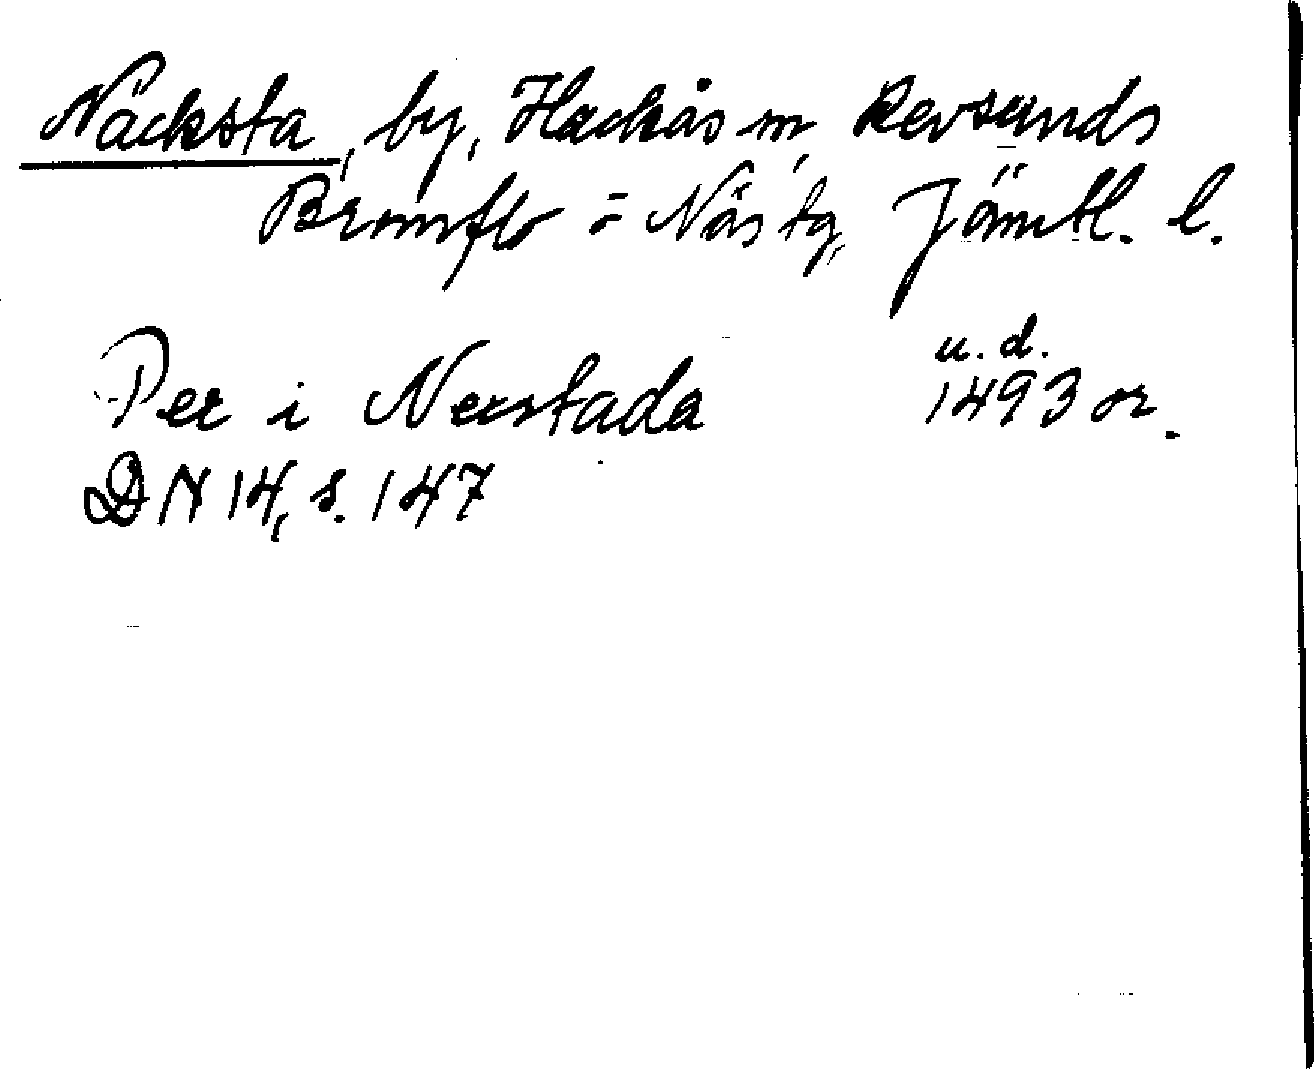 Näcksta, by, Hackås sn, Revsunds
Brunflo o Näs tg, Jämtl. l.
u. d.
Per i Nerstada 1493 or.
DN 14, s. 147